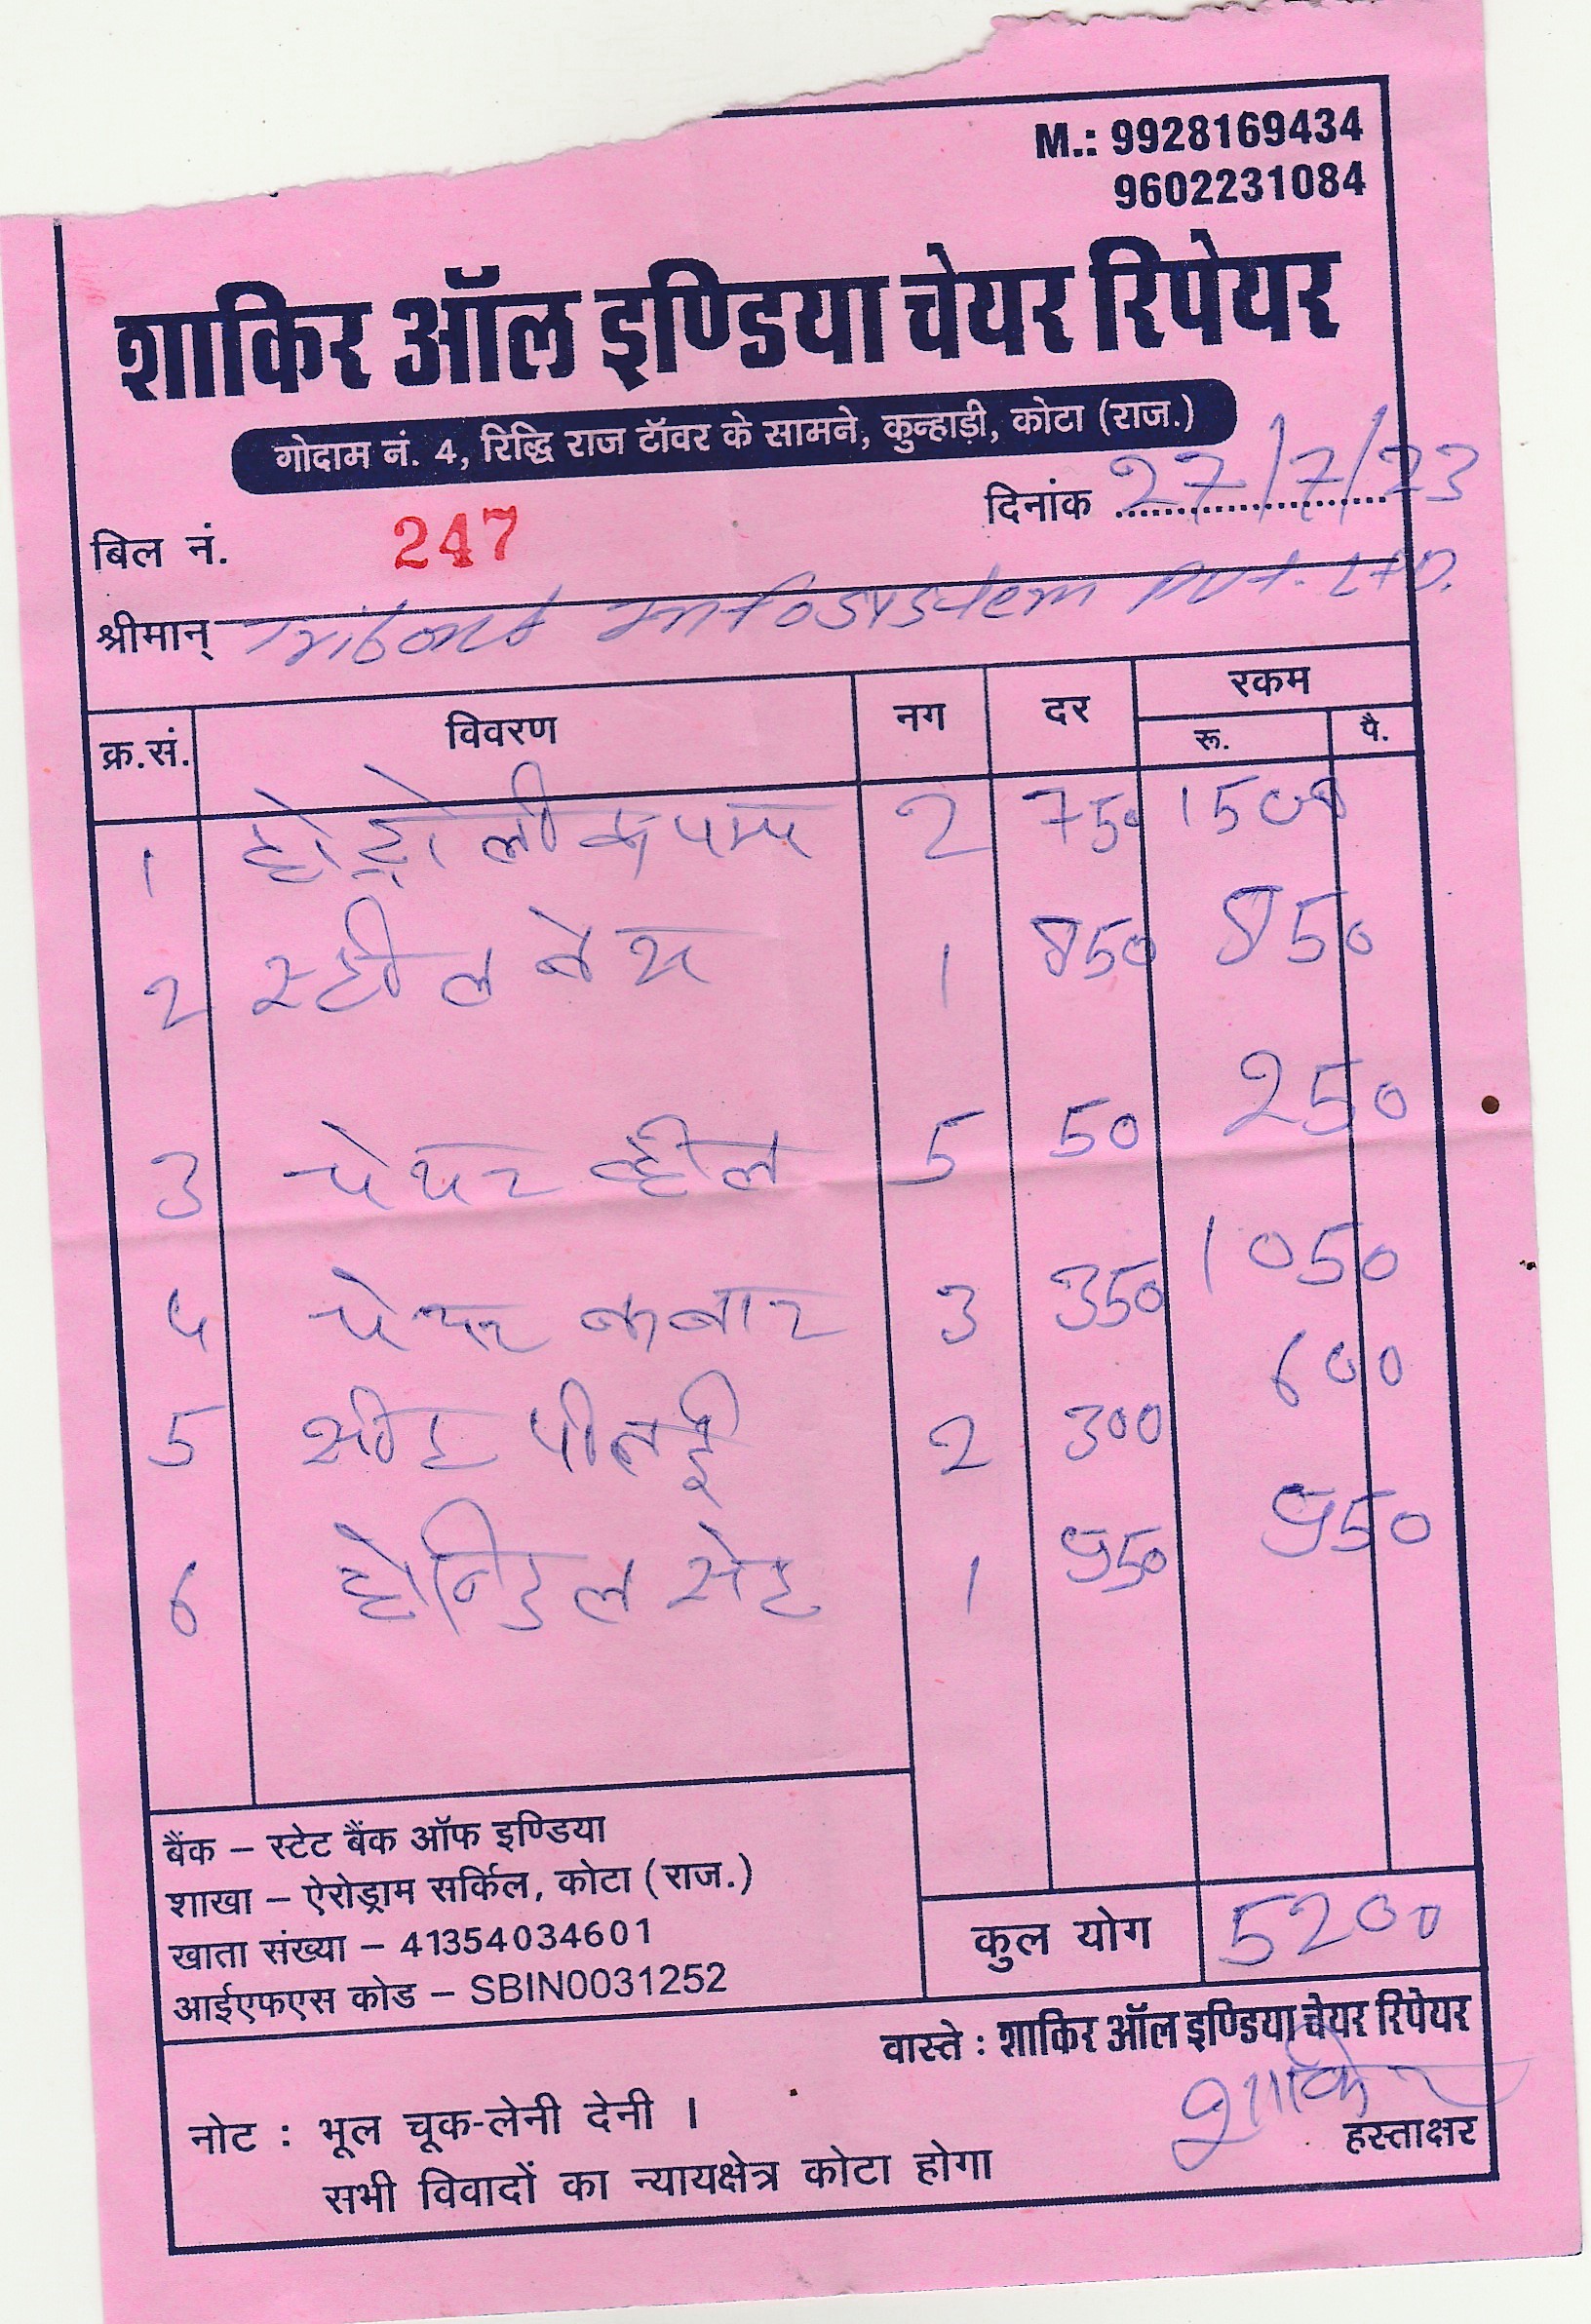 M.: 9928169434
9602231084
शाकिर ऑल इण्डिया चेयर रिपेयर
गोदाम नं. 4, रिद्धि राज टॉवर के सामने, कुन्हाड़ी, कोटा (राज.)
बिल नं. 247 दिनांक 27/7/23
श्रीमान् Infosystem Pvt. LTD.
क्र.सं. विवरण नग दर रकम
रू. पै.
1 होड्रोलीक पम्प 2 750 1500
2 स्टील बेस 1 850 850
3 चेयर व्हील 5 50 250
4 चेयर कबार 3 350 1050
5 सीट 2 300 600
6 होन्डिल सेट 1 950 950
बैंक – स्टेट बैंक ऑफ इण्डिया
शाखा – ऐरोड्राम सर्किल, कोटा (राज.)
खाता संख्या – 41354034601
आईएफएस कोड – SBIN0031252
कुल योग 5200
वास्ते : शाकिर ऑल इण्डिया चेयर रिपेयर
शाकिर
हस्ताक्षर
नोट : भूल चूक-लेनी देनी ।
सभी विवादों का न्यायक्षेत्र कोटा होगा